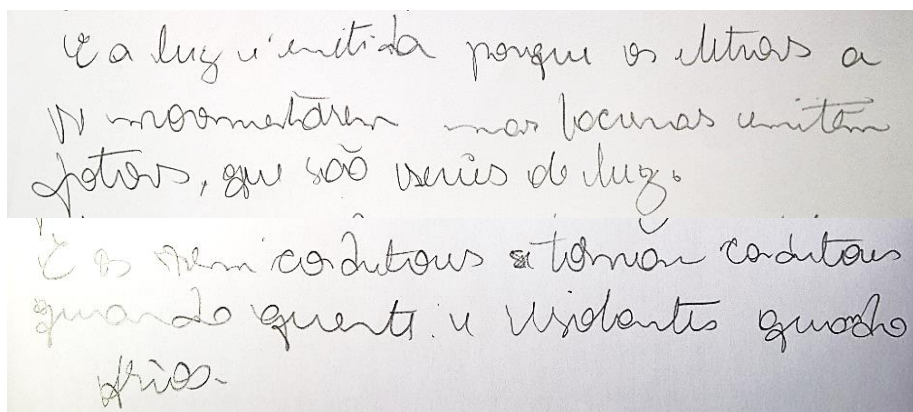 E a luz é emitida porque os eletrons a
se movimentarem nas lacunas emitem
fotons, que são  de luz.
E os semi condutores se tornão condutores
quando quente e isolantes quando
frios.